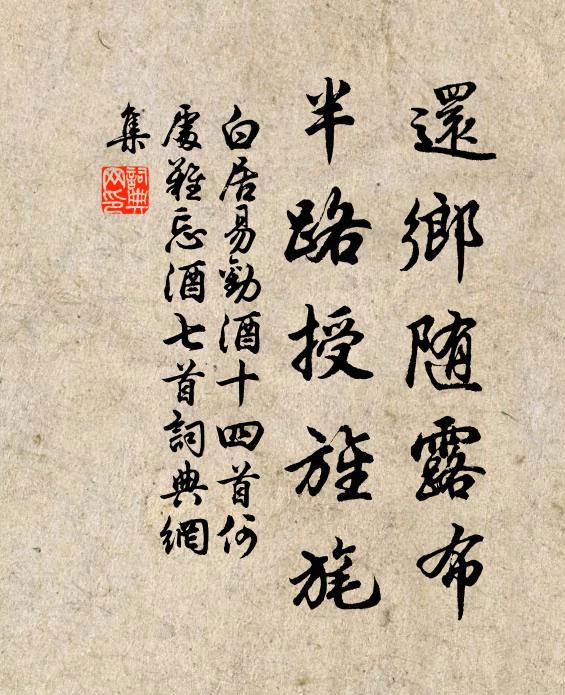 還鄉随露布
半路授旌旄
白居易勸酒十四首何
處難忘酒七首詞典網
集
詞典
网印